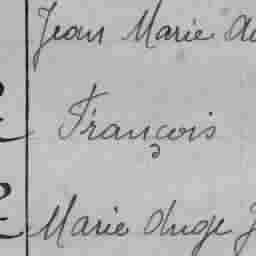 Jean Marie
François
Marie Ange